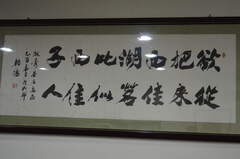 欲把西湖比西子
從來佳茗似佳人